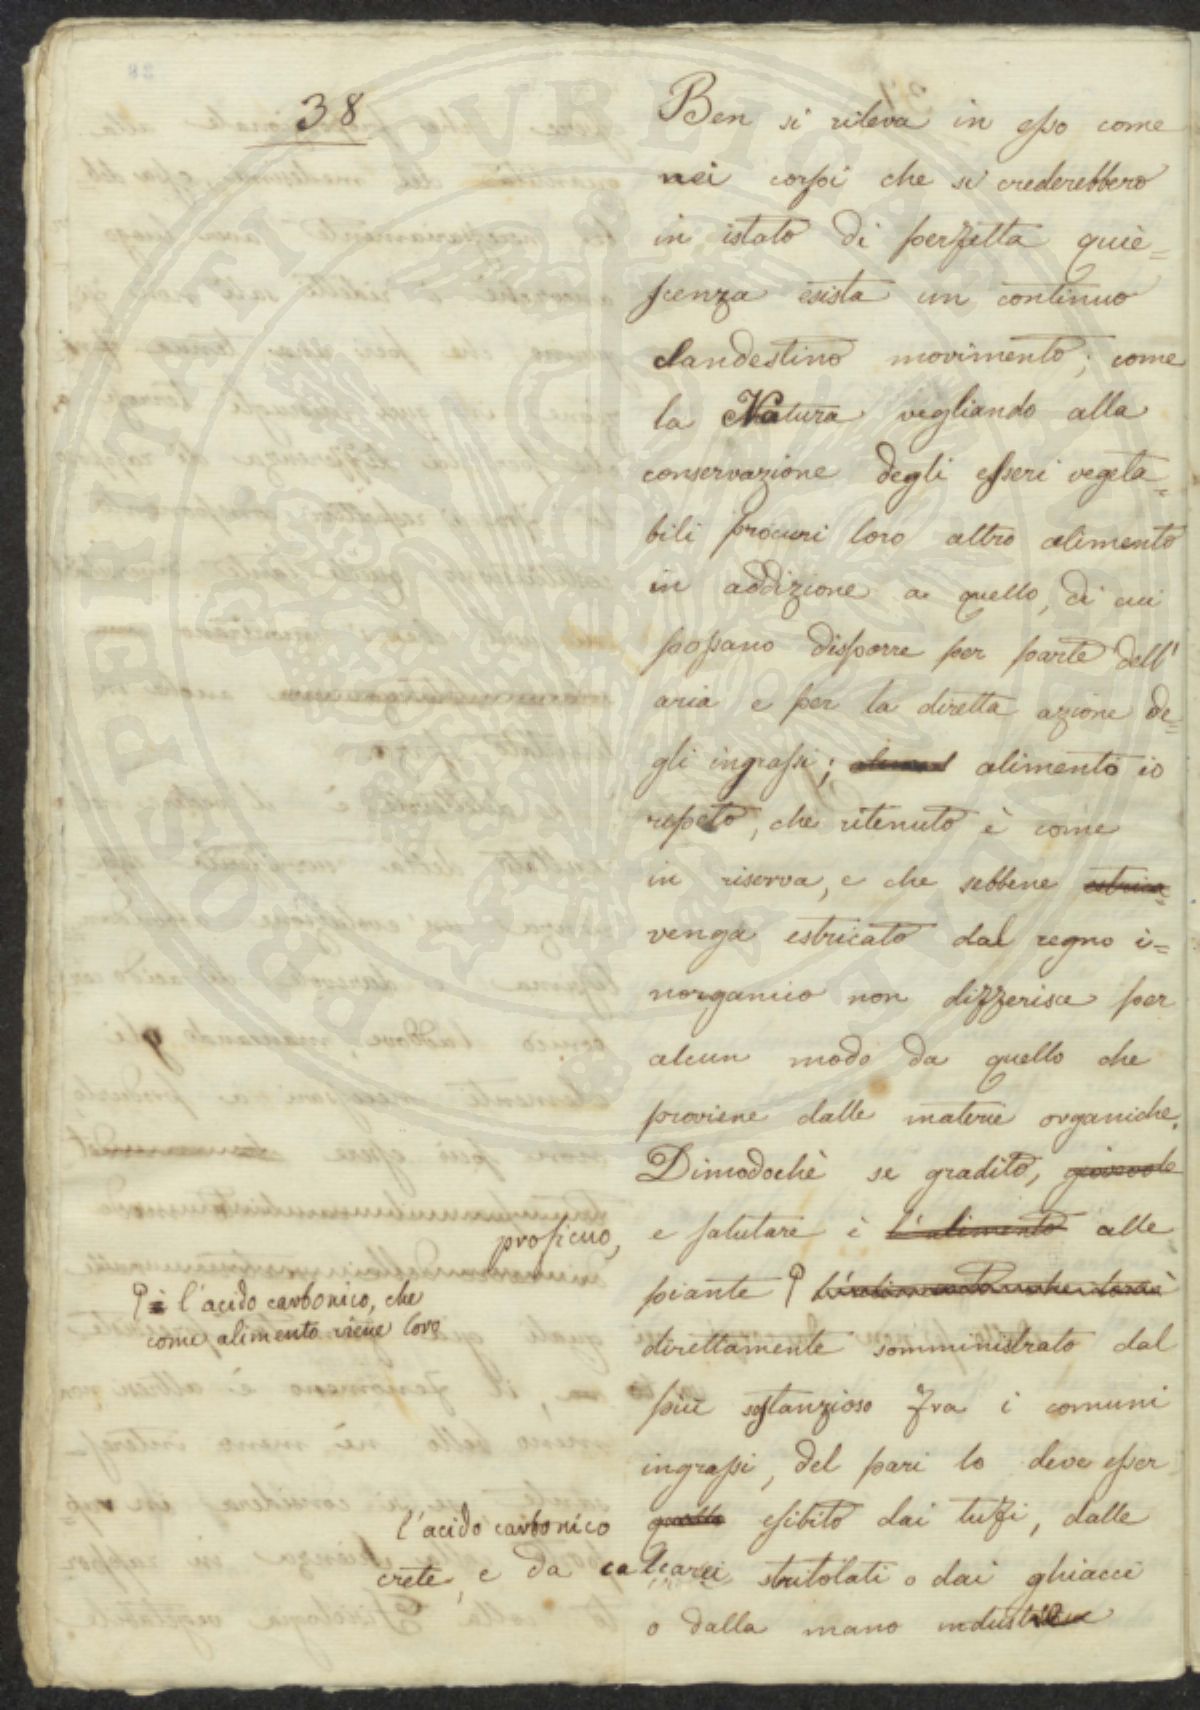 38
Ben si rileva in esso come
nei corpi che si crederebbero
in istato di perfetta quie=
scenza esista un continuo
clandestino movimento; come
la Natura vegliando alla
conservazione degli esseri vegeta=
bili procuri loro altro alimento
in addizione a quello, di cui
possano disporre per parte dell'
aria e per la diretta azione de=
gli ingrassi; alimento io
repeto, che ritenuto è come
in riserva, e che sebbene
venga estricato dal regno i=
norganico non differisce per
alcun modo da quello che
proviene dalle materie organiche.
Dimodochè se gradito, giovevole
proficuo,
e salutare è l'alimento alle
piante
è l'acido carbonico, che
come alimento viene loro
direttamente somministrato dal
più sostanzioso fra i comuni
ingrassi, del pari lo deve esser
l'acido carbonico
quello esibito dai tufi, dalle
crete, e da calcarei stritolati o dai ghiacci
o dalla mano